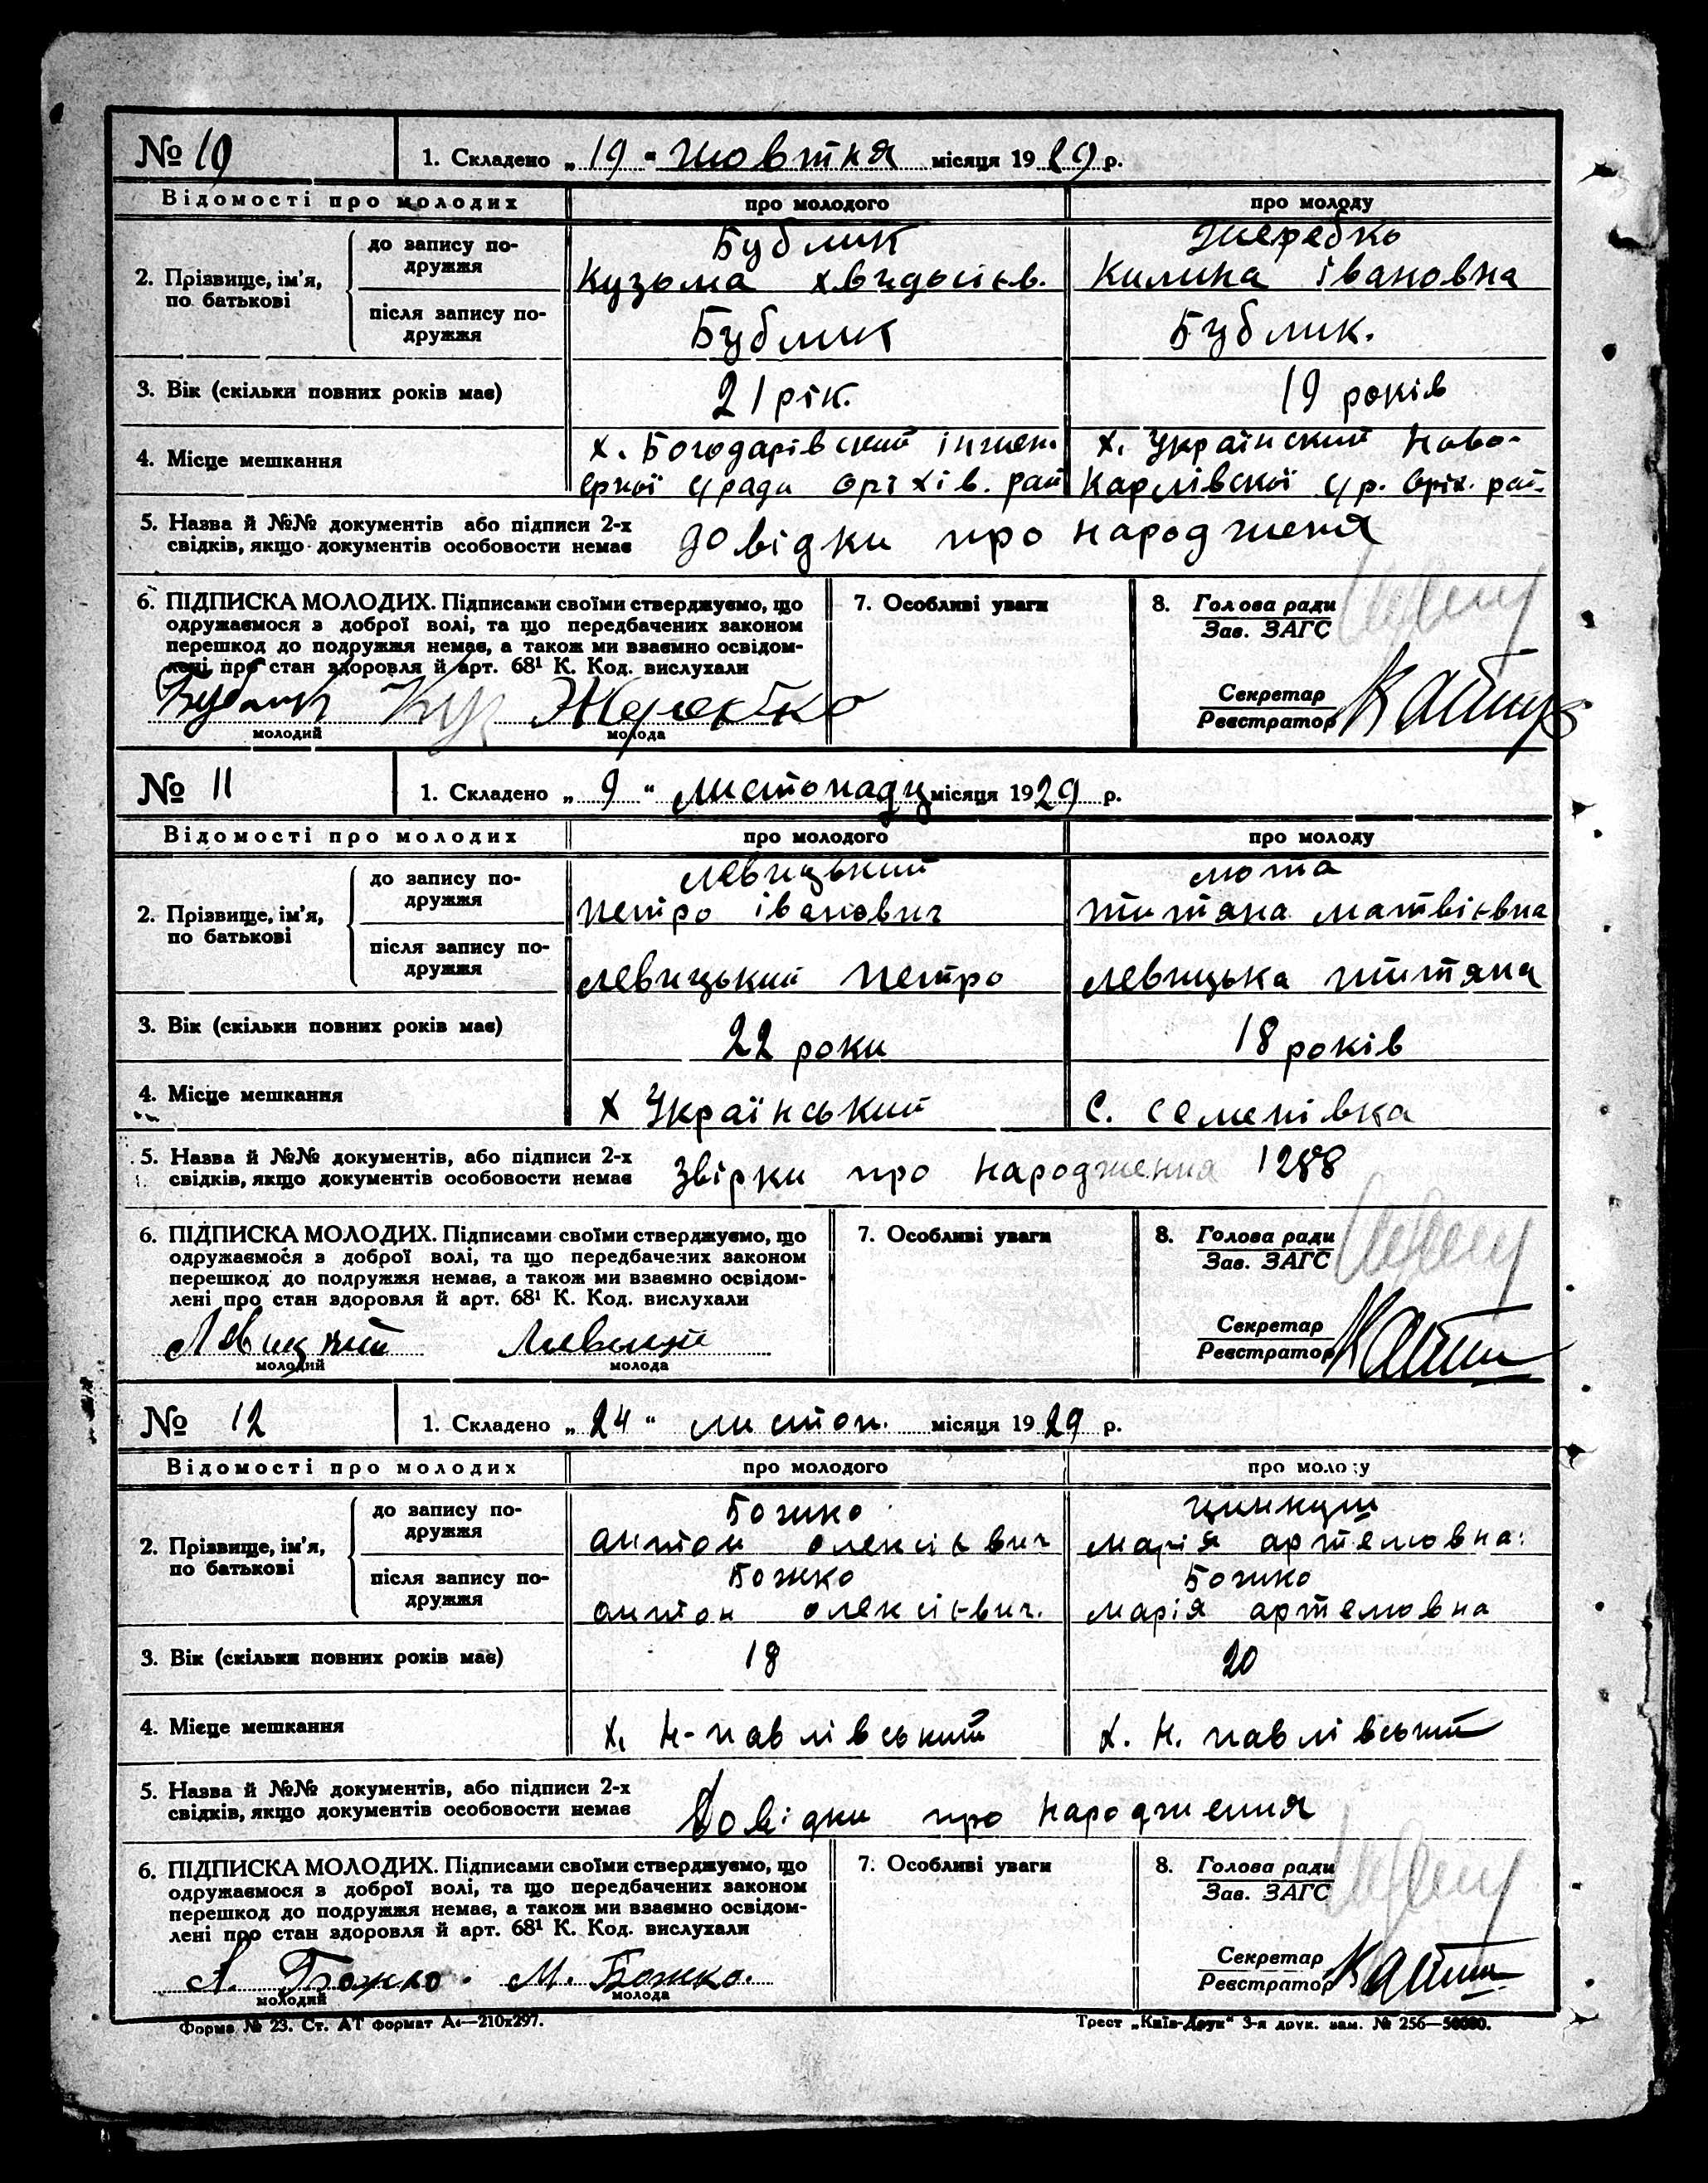 № 10 1. Складено „ 19 “ жовтня місяця 1929 р.
Відомості про молодих про молодого про молоду
2. Прізвище, ім’я, по батькові
до запису подружжя
Бублик Жеребко
Кузома Хведосієв. Килина Івановна
після запису подружжя
Бублик Бублик.
3. Вік (скільки повних років має) 21 рік. 19 років
4. Місце мешкання
х. Богодарівский інжен. х. Український Ново-
ерної с/ради Оріхів. рай Карлівскої с/р. Оріх. рай.
5. Назва й №№ документів або підписи 2-х
свідків, якщо документів особовости немає
довідки про народженя
6. ПІДПИСКА МОЛОДИХ. Підписами своїми стверджуємо, що
одружаємося з доброї волі, та що передбачених законом
перешкод до подружжя немає, а також ми взаємно освідом-
лені про стан здоровля й арт. 68¹ К. Код. вислухали
Бублик Куз Жеребко
молодий молода
7. Особливі уваги
8. Голова ради
Зав. ЗАГС
Секретар
Реєстратор
№ 11 1. Складено „ 9 “ листопаду місяця 1929 р.
Відомості про молодих про молодого про молоду
2. Прізвище, ім’я, по батькові
до запису подружжя
Левицький Люта
Петро Іванович Титяна Матвієвна
після запису подружжя
Левицький Петро Левицька Титяна
3. Вік (скільки повних років має) 22 роки 18 років
4. Місце мешкання х Український с. Семенівка
5. Назва й №№ документів, або підписи 2-х
свідків, якщо документів особовости немає
Звірки про народження 1288
6. ПІДПИСКА МОЛОДИХ. Підписами своїми стверджуємо, що
одружаємося з доброї волі, та що передбачених законом
перешкод до подружжя немає, а також ми взаємно освідом-
лені про стан здоровля й арт. 68¹ К. Код. вислухали
молодий молода
7. Особливі уваги
8. Голова ради
Зав. ЗАГС
Секретар
Реєстратор
№ 12 1. Складено „ 24 “ листоп. місяця 1929 р.
Відомості про молодих про молодого про молоду
2. Прізвище, ім’я, по батькові
до запису подружжя
Божко Цинкуш
Антон Олексієвич Марія Артемовна:
після запису подружжя
Божко Божко
Антон Олексієвич. Марія Артемовна
3. Вік (скільки повних років має) 18 20
4. Місце мешкання х. Н-Павлівський х. Н. Павлівський
5. Назва й №№ документів, або підписи 2-х
свідків, якщо документів особовости немає
Довідки про народження
6. ПІДПИСКА МОЛОДИХ. Підписами своїми стверджуємо, що
одружаємося з доброї волі, та що передбачених законом
перешкод до подружжя немає, а також ми взаємно освідом-
лені про стан здоровля й арт. 68¹ К. Код. вислухали
А. Божко. М. Божко.
молодий молода
7. Особливі уваги
8. Голова ради
Зав. ЗАГС
Секретар
Реєстратор
Форма № 23. Ст. АТ формат А4—210х297. Трест „Київ-Друк“ 3-я друк. зам. № 256—50000.